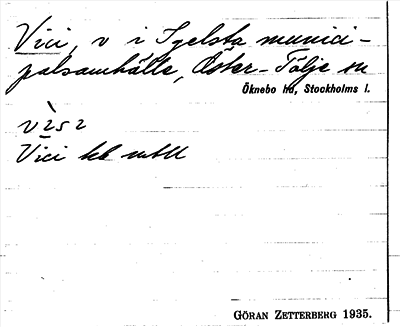 Vici, v i Igelsta munici-
palsamhälle, Öster-Tälje sn
Öknebo hd, Stockholms l.
Vici
GÖRAN ZETTERBERG 1935.